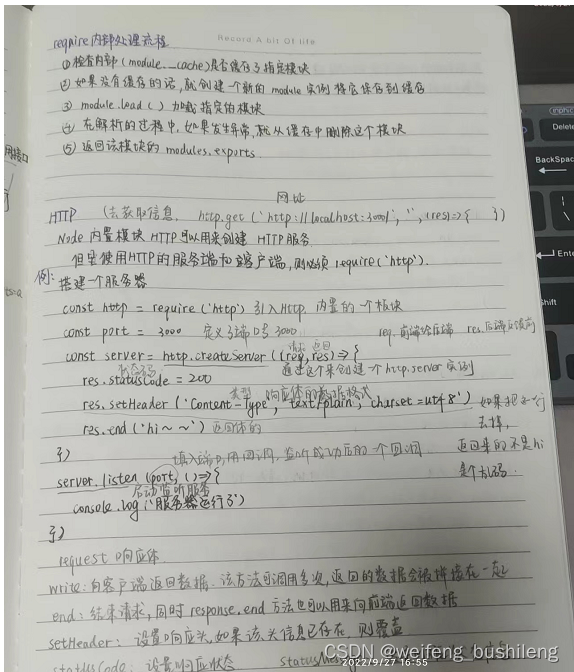 Record A bit Of life
require内部处理流程
① 检查内部(module._cache)是否缓存了指定模块
② 如果没有缓存的话,就创建一个新的module实例将它保存到缓存
③ module.load()加载指定的模块
④ 在解析的过程中,如果发生异常,就从缓存中删除这个模块
⑤ 返回该模块的modules.exports
网址
HTTP (去获取信息. http.get('http://localhost:3000/', '', (res)=>{ })
Node 内置模块 HTTP可以用来创建 HTTP服务.
但是使用HTTP的服务端和客户端,则必须require('http').
例: 搭建一个服务器
const http = require('http') 引入Http 内置的一个模块
const port = 3000 定义了端口号3000 req.前端给后端 res.后端
请求 返回
const server = http.createServer((req,res)=>{
状态码 通过这个来创建一个http.server实例
res.statusCode = 200
类型 响应体的数据格式
res.setHeader('Content-Type', 'text/plain; charset=utf8') 如果把这一行
res.end('hi~~') 返回体的 去掉,
}) 填入端口,用回调,监听成功后的一个回调 返回来的不是hi
server.listen(port, ()=>{ 是个乱码.
启动监听服务
console.log('服务器运行了')
})
request 响应体
write: 向客户端返回数据. 该方法可调用多次,返回的数据会被拼接在一起
end: 结束请求,同时response.end 方法也可以用来向前端返回数据
setHeader: 设置响应头,如果该头信息已存在,则覆盖
statusCode: 设置响应状态
CSDN @weifeng_bushileng
2022/9/27 16:55
Delete
BackSpac
Enter
Shift